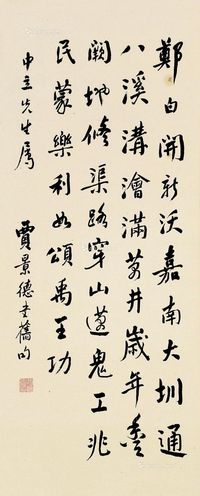 鄭白開新沃嘉南大圳通
八溪溝澮滿萬井歲年豐
闕地修渠路穿山邁鬼工兆
民蒙樂利如頌禹王功
立先生屬
賈景德書舊句